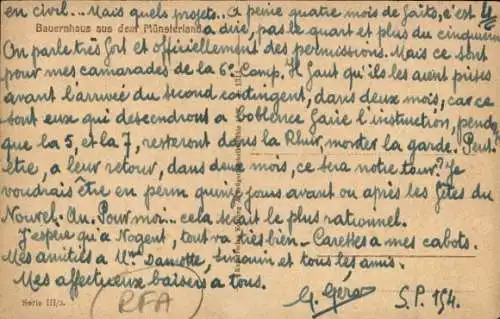 en civil... Mais quels projets.. A peine quatre mois de faits, c'est
Bauernhaus aus dem Münsterland
a dire, pas le quart et plus du cinquième
On parle très fort et officiellement des permissions. Mais ce sont
pour mes camarades de la 6e Comp. Il faut qu'ils les aient prises
avant l'arrivée du second contingent, dans deux mois, car ce
sont eux qui descendront a Coblence faire l'instruction, pendt
que la 5, et la 7, resteront dans la Rhur, monter la garde. Peut.
être, a leur retour, dans deux mois, ce sera notre tour? Je
voudrais être en perm quinze jours avant ou après les fêtes du
Nouvel-An. Pour moi... cela serait le plus rationnel.
J'espère qu'a Nogent, tout va très bien - Caresses a mes cabots.
Mes amitiés a Mme Damotte, et tous les amis.
Mes affectueux baisers a tous.
G. S.P. 154.
Serie III/2.
RFA